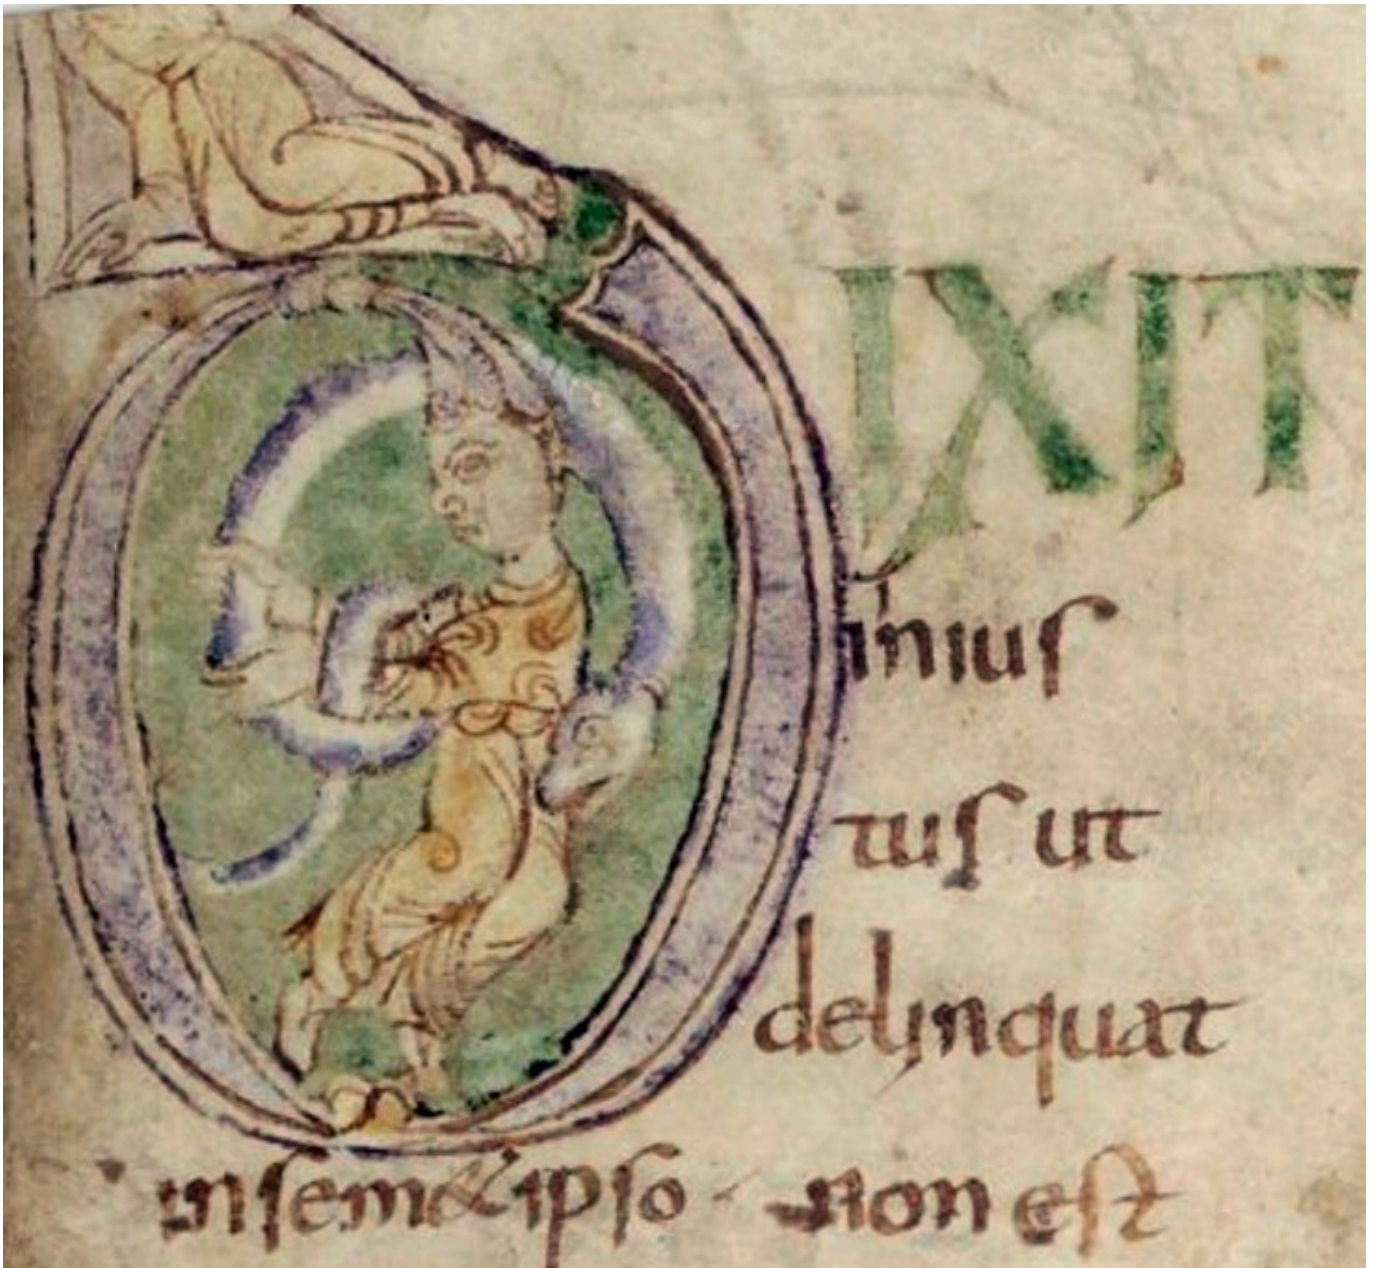 DIXIT
inius
tus ut
delinquat
insem&ipso · non est